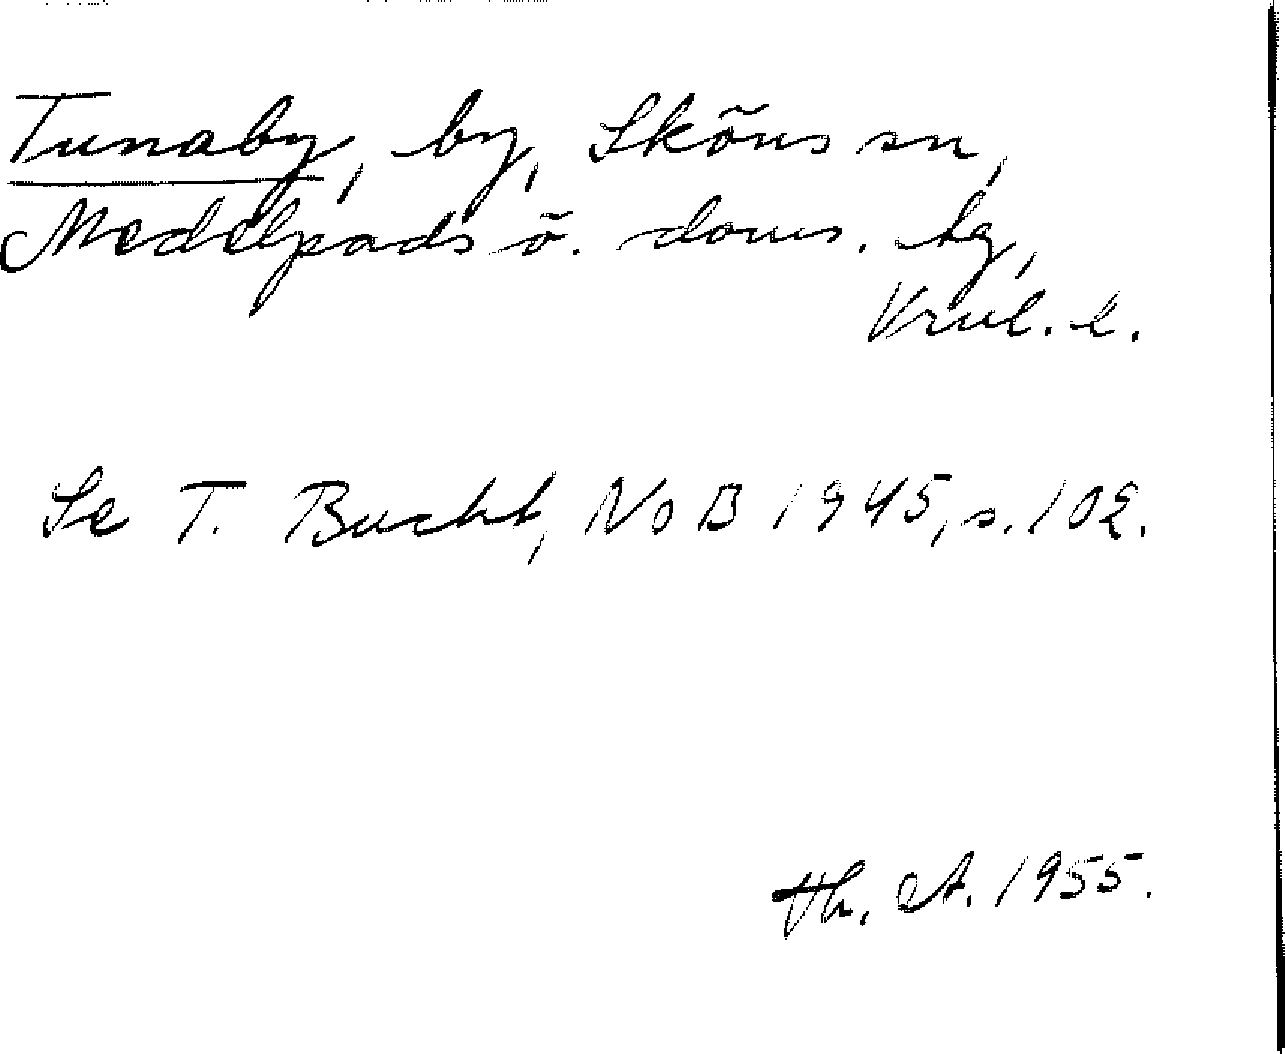 Tunaby, by, Sköns sn,
Medelpads ö. doms. tg,
Vrnl. l.
Se T. Bucht, NoB 1945, s. 102.
Th. A. 1955.